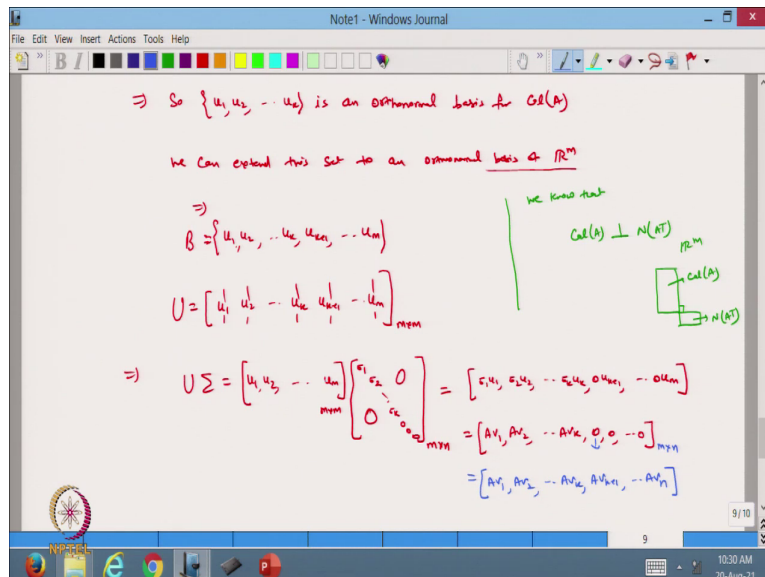 Note1 - Windows Journal
File Edit View Insert Actions Tools Help
B I
⇒ So {u₁, u₂, ... uₖ} is an orthonormal basis for Col(A)
we can extend this set to an orthonormal basis of ℝᵐ
⇒
B = {u₁, u₂, ... uₖ, uₖ₊₁, ... uₘ}
U = [u₁ u₂ ... uₖ uₖ₊₁ ... uₘ]ₘₓₘ
we know that
Col(A) ⊥ N(AT)
ℝᵐ
→ Col(A)
→ N(AT)
⇒ U Σ = [u₁, u₂, ... uₘ]ₘₓₘ [σ₁ σ₂ ... σₖ 0 0 0 0 0]ₘₓₙ = [σ₁u₁, σ₂u₂, ... σₖuₖ, 0uₖ₊₁, ... 0uₘ]
= [Av₁, Av₂, ... Avₖ, 0, 0, ... 0]ₘₓₙ
= [Av₁, Av₂, ... Avₖ, Avₖ₊₁, ... Avₙ]
9/10
9
NPTEL
10:30 AM
20-Aug-21